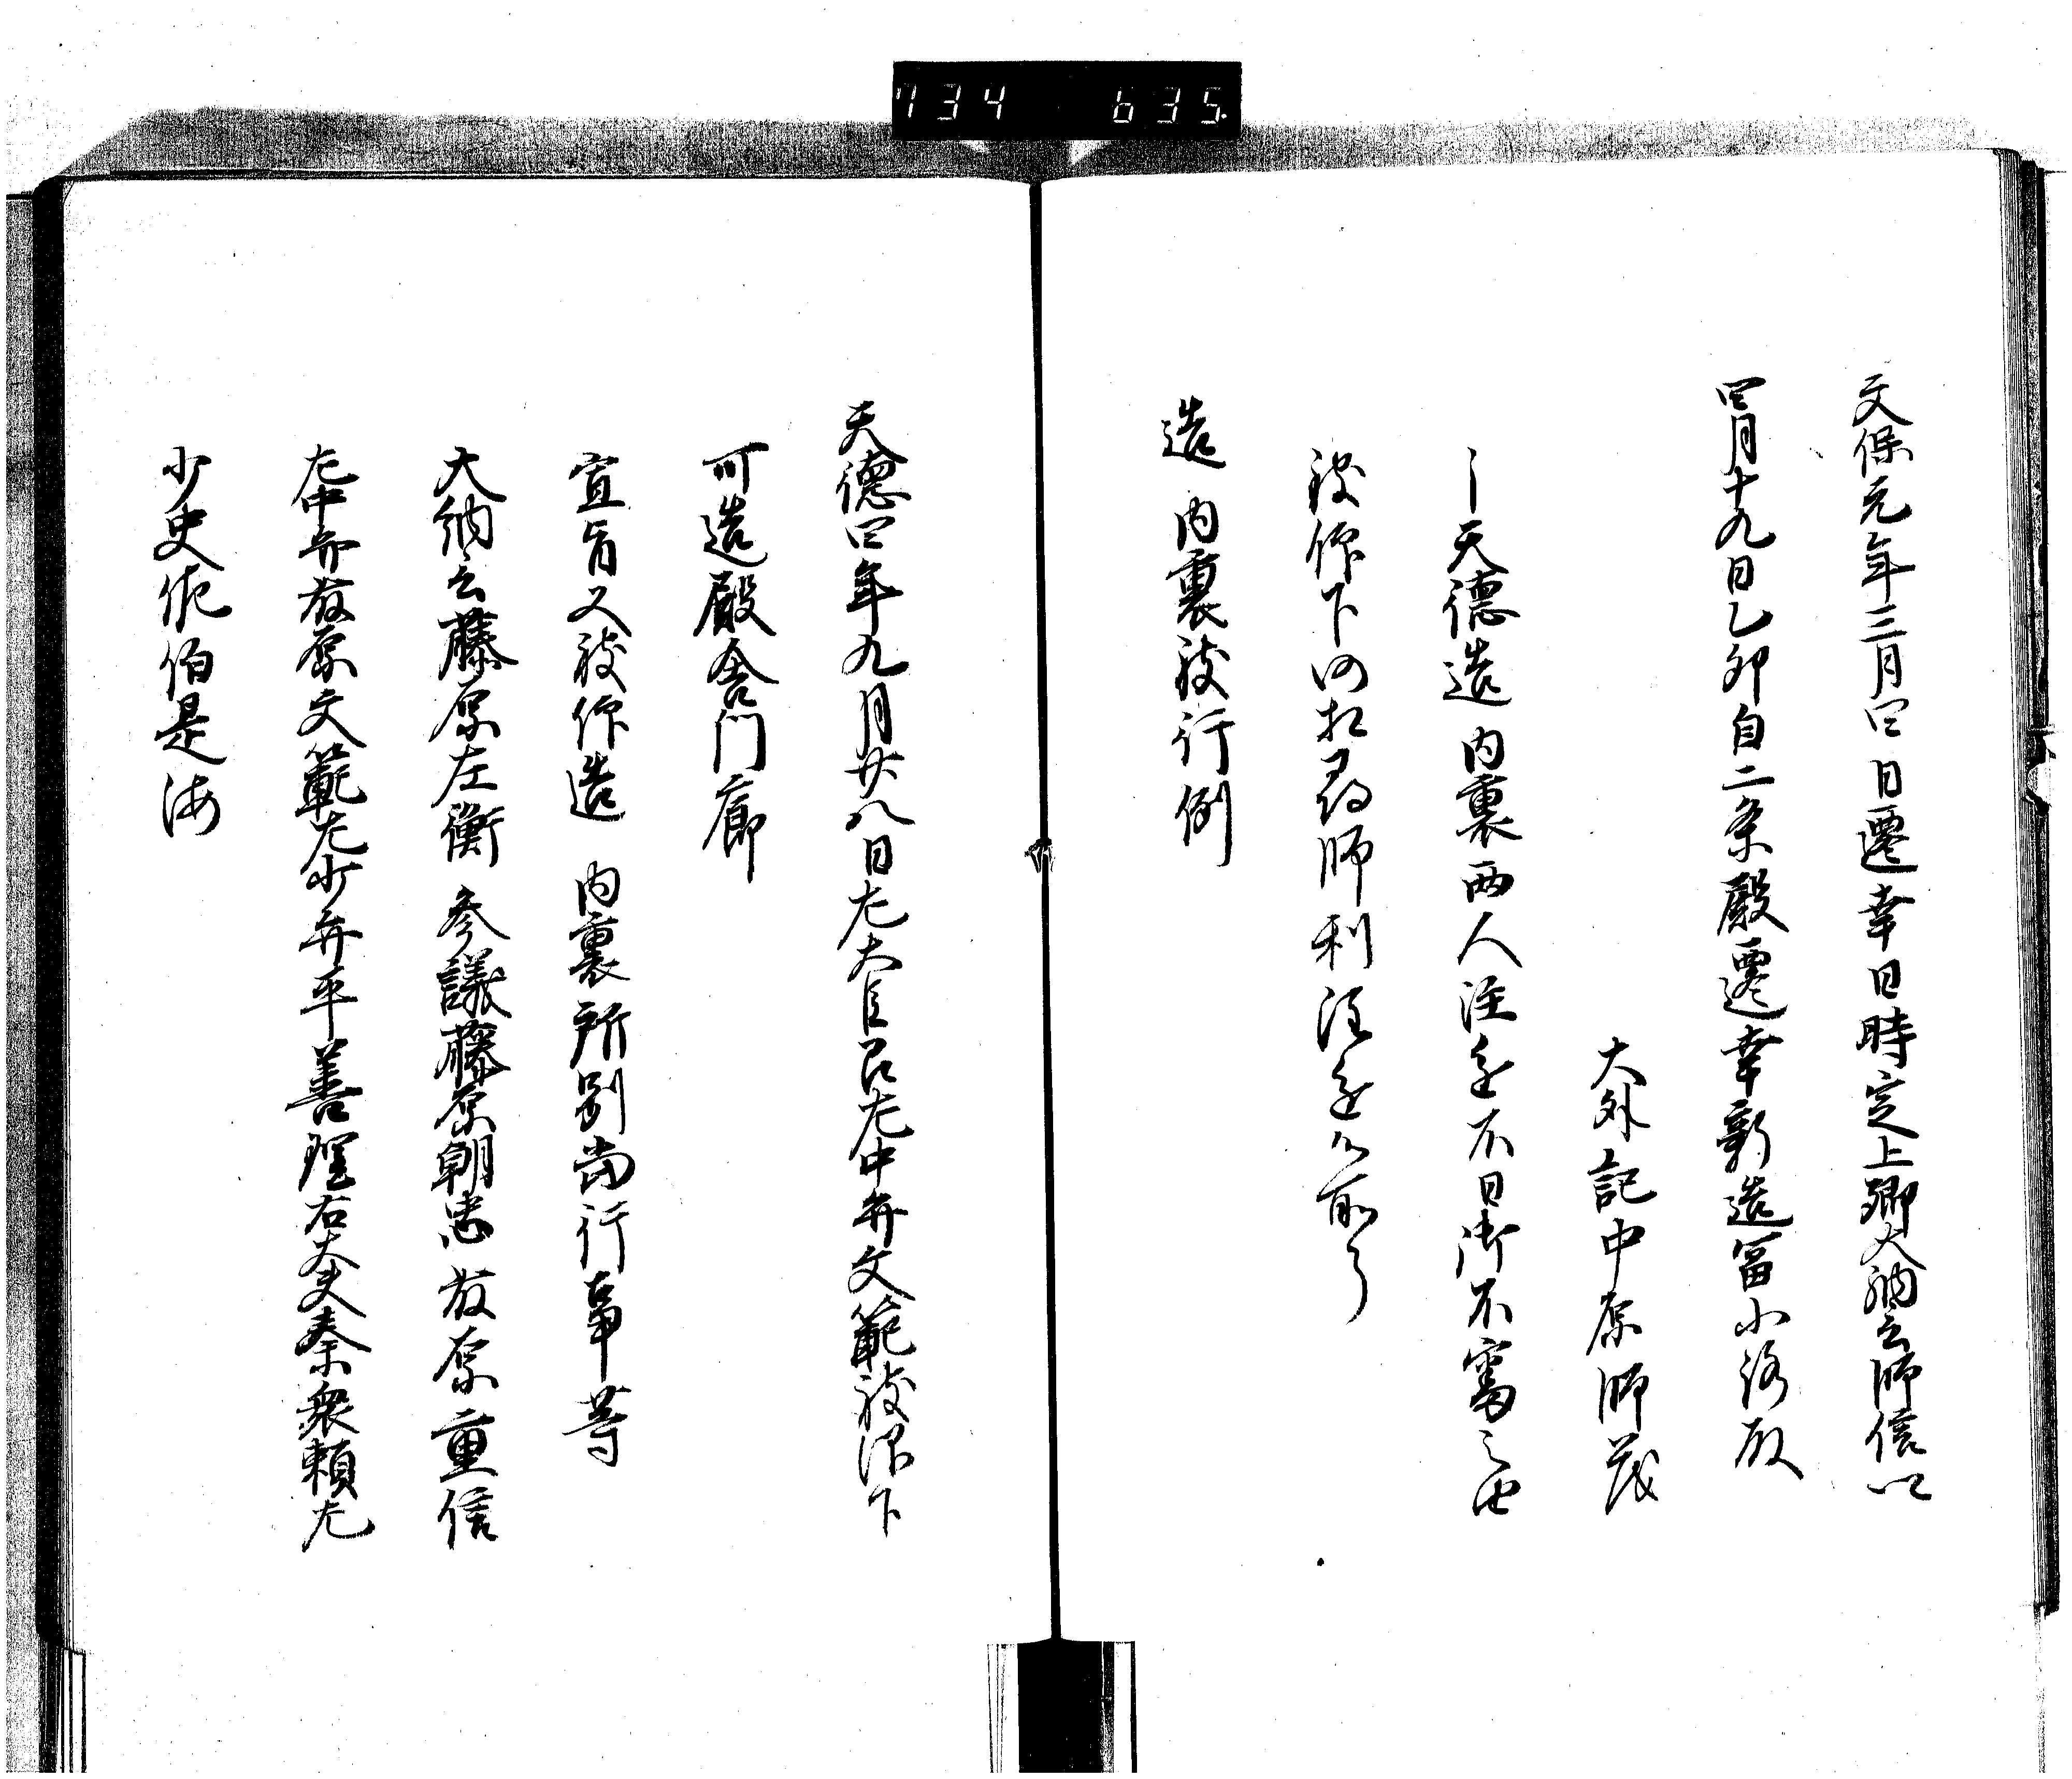 734 635
文保元年三月四日遷幸日時定上卿大納言師信以
四月十九日乙卯自二条殿遷幸新造冨小路殿
大外記中原師茂
天德造 内裏両人注進不日御不審之也
被仰下仍相尋師利注進如前了
造 内裏被行例
天德四年九月廿八日左大臣召左中弁文範被深下
可造殿舎門廊
宣旨又被仰造 内裏所別當行事等
大納言藤原在衡 参議藤原朝忠 藤原重信
左中弁藤原文範左少弁平善理右大史秦衆頼左
少史佐伯是海